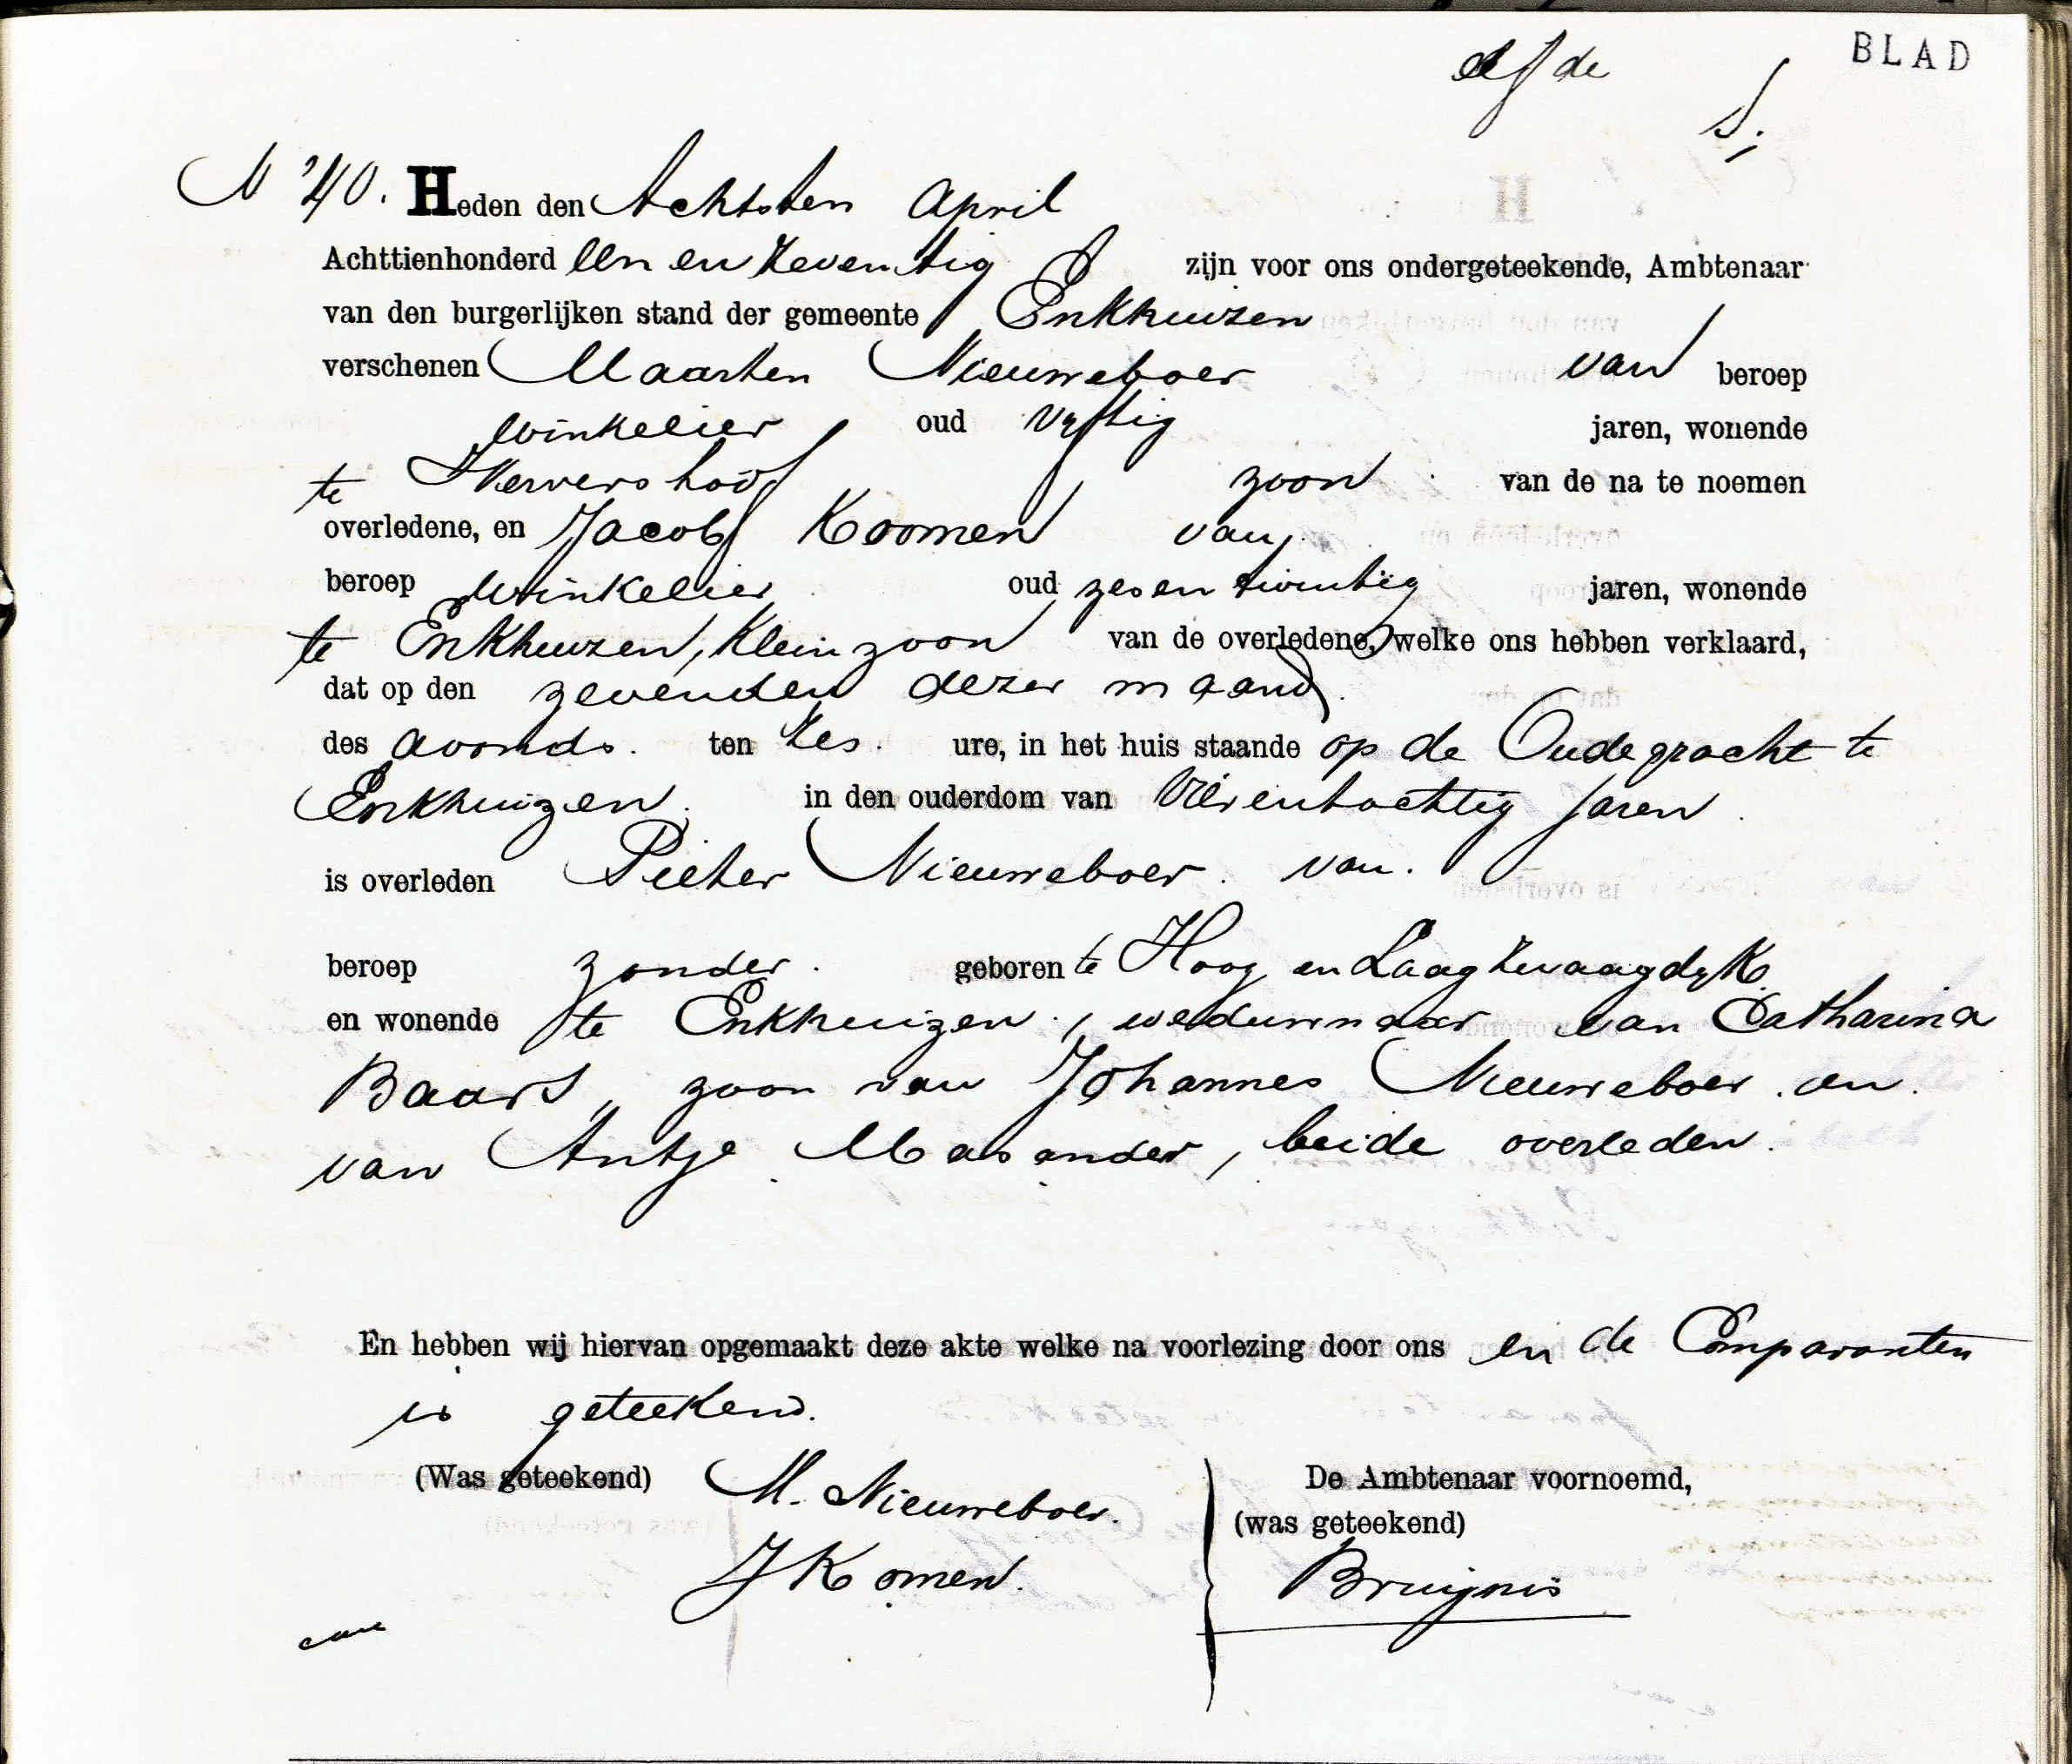 elfde BLAD
N 40. Heden den Achtsten April
Achttienhonderd Een en Zeventig zijn voor ons ondergeteekende, Ambtenaar
van den burgerlijken stand der gemeente Enkhuizen
verschenen Maarten Nieuweboer van beroep
winkelier oud Vyftig jaren, wonende
te Wervershoof zoon van de na te noemen
overledene, en Jacob Koomen van
beroep Winkelier oud zesentwintig jaren, wonende
te Enkhuizen, Kleinzoon van de overledene, welke ons hebben verklaard,
dat op den zevenden dezer maand
des avonds. ten Zes. ure, in het huis staande op de Oudegracht te
Enkhuizen. in den ouderdom van Vierentachtig Jaren.
is overleden Pieter Nieuweboer. van.
beroep zonder. geboren te Hoog en Laag Zwaagdyk
en wonende te Enkhuizen, weduwnaar van Catharina
Baars, zoon van Johannes Nieuweboer. en.
van Antje Masander, beide overleden.
En hebben wij hiervan opgemaakt deze akte welke na voorlezing door ons en de Comparanten
is geteekend.
(Was geteekend) M. Nieuweboer. De Ambtenaar voornoemd,
(was geteekend)
J Komen. Bruijnis